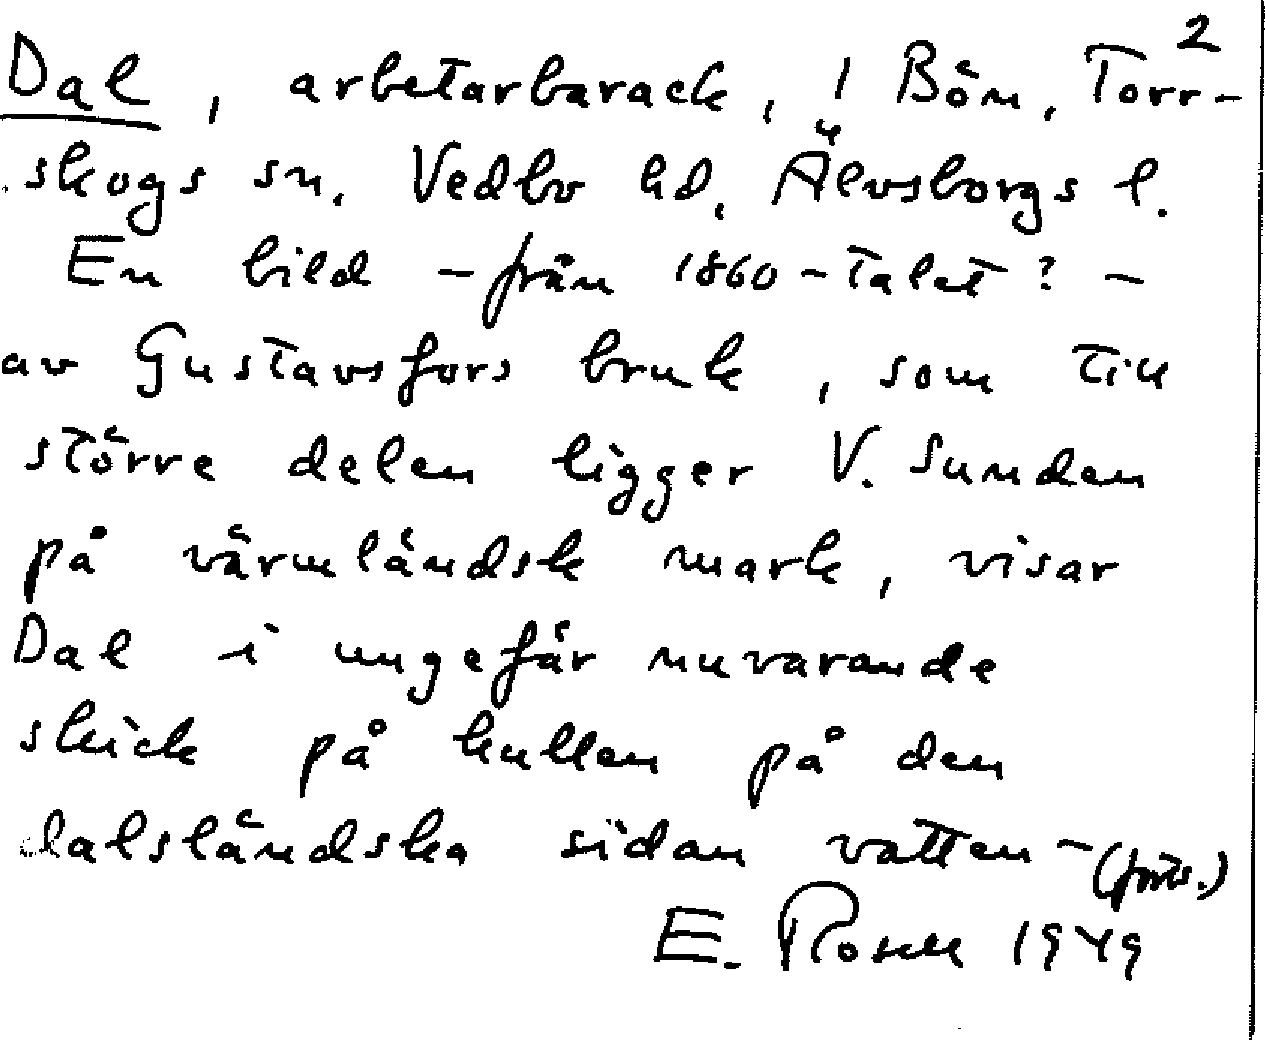 2
Dal, arbetarbarack, / Bön, Torr-
skogs sn. Vedbo hd, Älvsborgs l.
En bild - från 1860-talet? -
av Gustavsfors bruk, som till
större delen ligger V. Sunden
på värmländsk mark, visar
Dal i ungefär nuvarande
skick på kullen på den
dalsländska sidan vatten- (forts.)
E. Rosell 1949